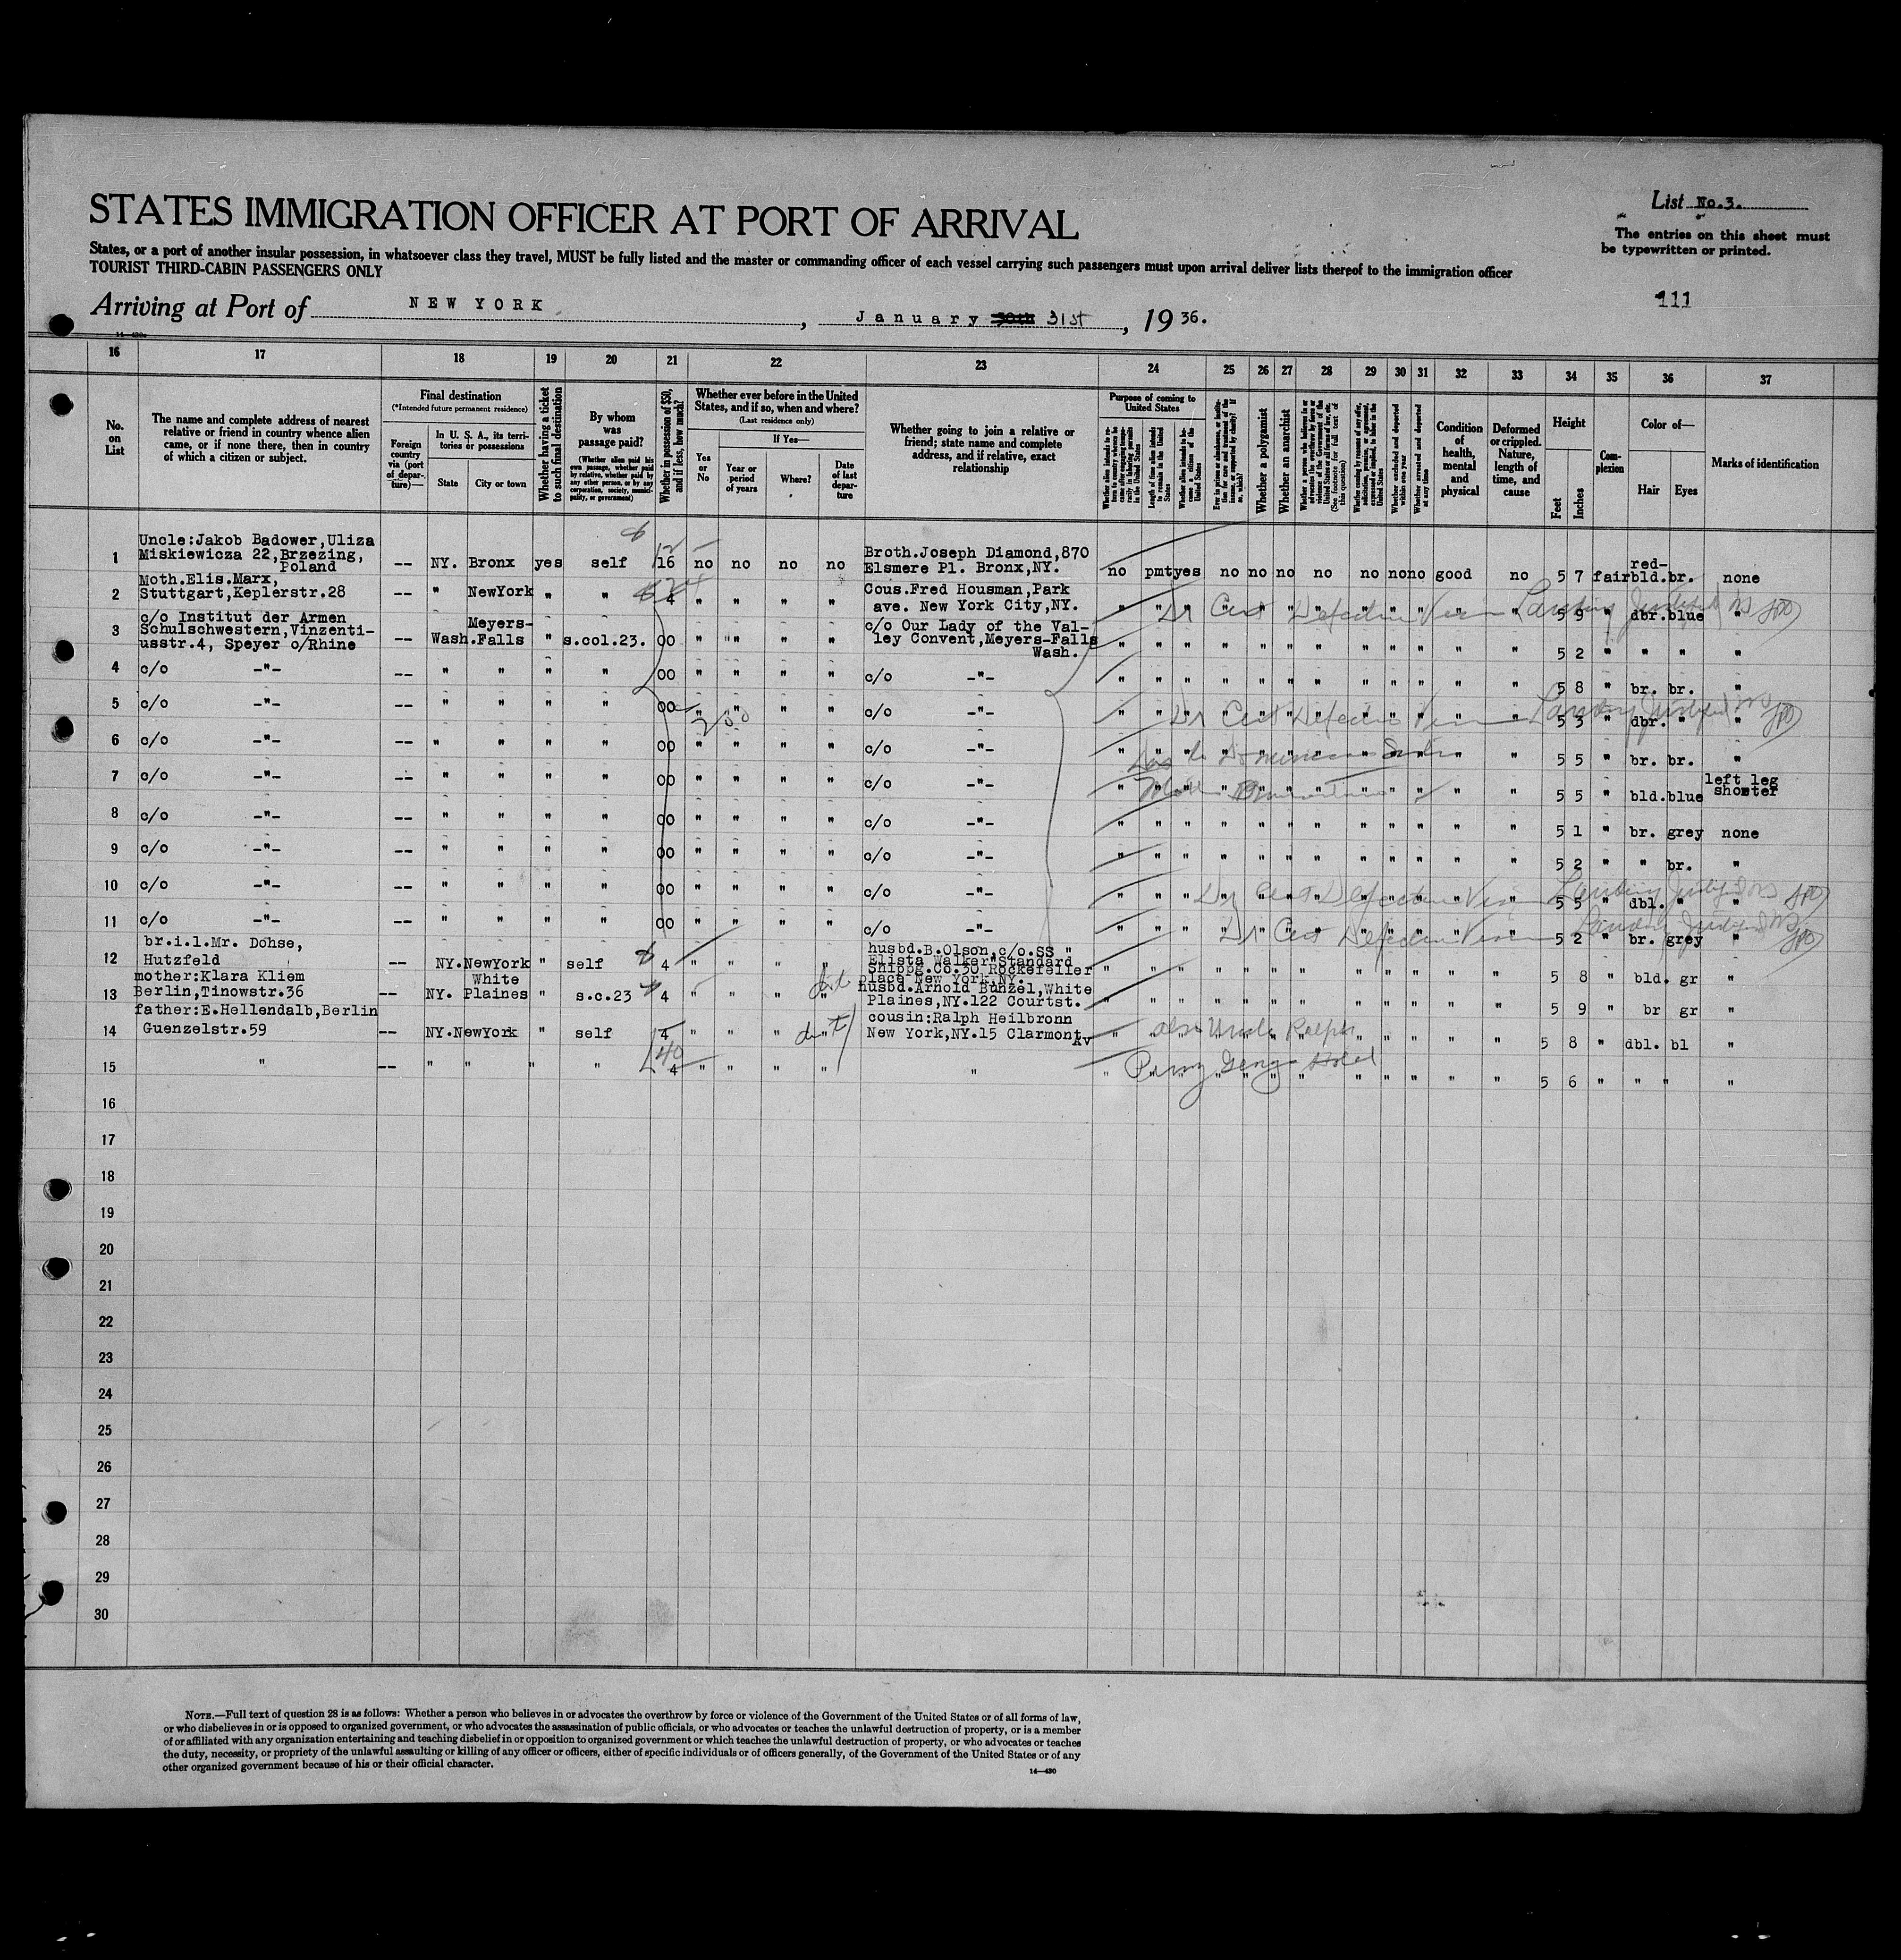 STATES IMMIGRATION OFFICER AT PORT OF ARRIVAL
List No.3.
The entries on this sheet must
be typewritten or printed.
States, or a port of another insular possession, in whatsoever class they travel, MUST be fully listed and the master or commanding officer of each vessel carrying such passengers must upon arrival deliver lists thereof to the immigration officer
TOURIST THIRD-CABIN PASSENGERS ONLY
111
Arriving at Port of NEW YORK, January 30th 31st, 1936.
16 17 18 19 20 21 22 23 24 25 26 27 28 29 30 31 32 33 34 35 36 37
No. on List
The name and complete address of nearest relative or friend in country whence alien came, or if none there, then in country of which a citizen or subject.
Final destination
(*Intended future permanent residence)
Foreign country via (port of departure)—
In U. S. A., its territories or possessions
State
City or town
Whether having a ticket to such final destination
By whom was passage paid?
(Whether alien paid his own passage, whether paid by relative, whether paid by any other person, or by any corporation, society, municipality, or government)
Whether in possession of $50, and if less, how much?
Whether ever before in the United States, and if so, when and where?
(Last residence only)
Yes or No
If Yes—
Year or period of years
Where?
Date of last departure
Whether going to join a relative or friend; state name and complete address, and if relative, exact relationship
Purpose of coming to United States
Length of time alien intends to remain in the United States
Whether alien intends to become a citizen of the United States
Whether a polygamist
Whether an anarchist
(See footnote for full text of this question)
Whether excluded and deported within one year
Whether arrested and deported at any time
Condition of health, mental and physical
Deformed or crippled. Nature, length of time, and cause
Height
Feet
Inches
Complexion
Color of—
Hair
Eyes
Marks of identification
Uncle:Jakob Badower,Uliza
1 Miskiewicza 22,Brzezing, Poland -- NY. Bronx yes self 16 no no no no Broth.Joseph Diamond,870 Elsmere Pl. Bronx,NY. no pmt yes no no no no no no no good no 5 7 fair red-bld. br. none
2 Moth.Elis.Marx, Stuttgart,Keplerstr.28 -- " NewYork " " 4 " " " " Cous.Fred Housman,Park ave. New York City,NY. " " " " " " " " " " " " 5 9 " dbr. blue "
3 c/o Institut der Armen Schulschwestern,Vinzenti-usstr.4, Speyer o/Rhine -- Wash. Meyers-Falls " s.col.23. 00 " " " " c/o Our Lady of the Valley Convent,Meyers-Falls Wash. " " " " " " " " " " " " 5 2 " " " "
4 c/o -"- -- " " " " 00 " " " " c/o -"- " " " " " " " " " " " " 5 8 " br. br. "
5 c/o -"- -- " " " " 00 " " " " c/o -"- " " " " " " " " " " " " 5 3 " dbr. " "
6 c/o -"- -- " " " " 00 " " " " c/o -"- " " " " " " " " " " " " 5 5 " br. br. "
7 c/o -"- -- " " " " 00 " " " " c/o -"- " " " " " " " " " " " " 5 5 " bld. blue left leg shorter
8 c/o -"- -- " " " " 00 " " " " c/o -"- " " " " " " " " " " " " 5 1 " br. grey none
9 c/o -"- -- " " " " 00 " " " " c/o -"- " " " " " " " " " " " " 5 2 " " br. "
10 c/o -"- -- " " " " 00 " " " " c/o -"- " " " " " " " " " " " " 5 5 " dbl. " "
11 c/o -"- -- " " " " 00 " " " " c/o -"- " " " " " " " " " " " " 5 2 " br. grey "
12 br.i.l.Mr. Dohse, Hutzfeld -- NY. NewYork " self 4 " " " " husbd.B.Olson,c/o.SS " Elista Walker"Standard Shippg.Co.30 Rockefeller place New York,NY. " " " " " " " " " " " " 5 8 " bld. gr "
13 mother:Klara Kliem Berlin,Tinowstr.36 -- NY. White Plaines " s.c.23 4 " " " " husbd.Arnold Bunzel,White Plaines,NY.122 Courtst. " " " " " " " " " " " " 5 9 " br gr "
14 father:E.Hellendalb,Berlin Guenzelstr.59 -- NY. NewYork " self 4 " " " " cousin:Ralph Heilbronn New York,NY.15 Clarmont Av " " " " " " " " " " " " 5 8 " dbl. bl "
15 " -- " " " " 4 " " " " " " " " " " " " " " " " " 5 6 " " " "
16
17
18
19
20
21
22
23
24
25
26
27
28
29
30
NOTE.—Full text of question 28 is as follows: Whether a person who believes in or advocates the overthrow by force or violence of the Government of the United States or of all forms of law,
or who disbelieves in or is opposed to organized government, or who advocates the assassination of public officials, or who advocates or teaches the unlawful destruction of property, or is a member
of or affiliated with any organization entertaining and teaching disbelief in or opposition to organized government or which teaches the unlawful destruction of property, or who advocates or teaches
the duty, necessity, or propriety of the unlawful assaulting or killing of any officer or officers, either of specific individuals or of officers generally, of the Government of the United States or of any
other organized government because of his or their official character.
14—430